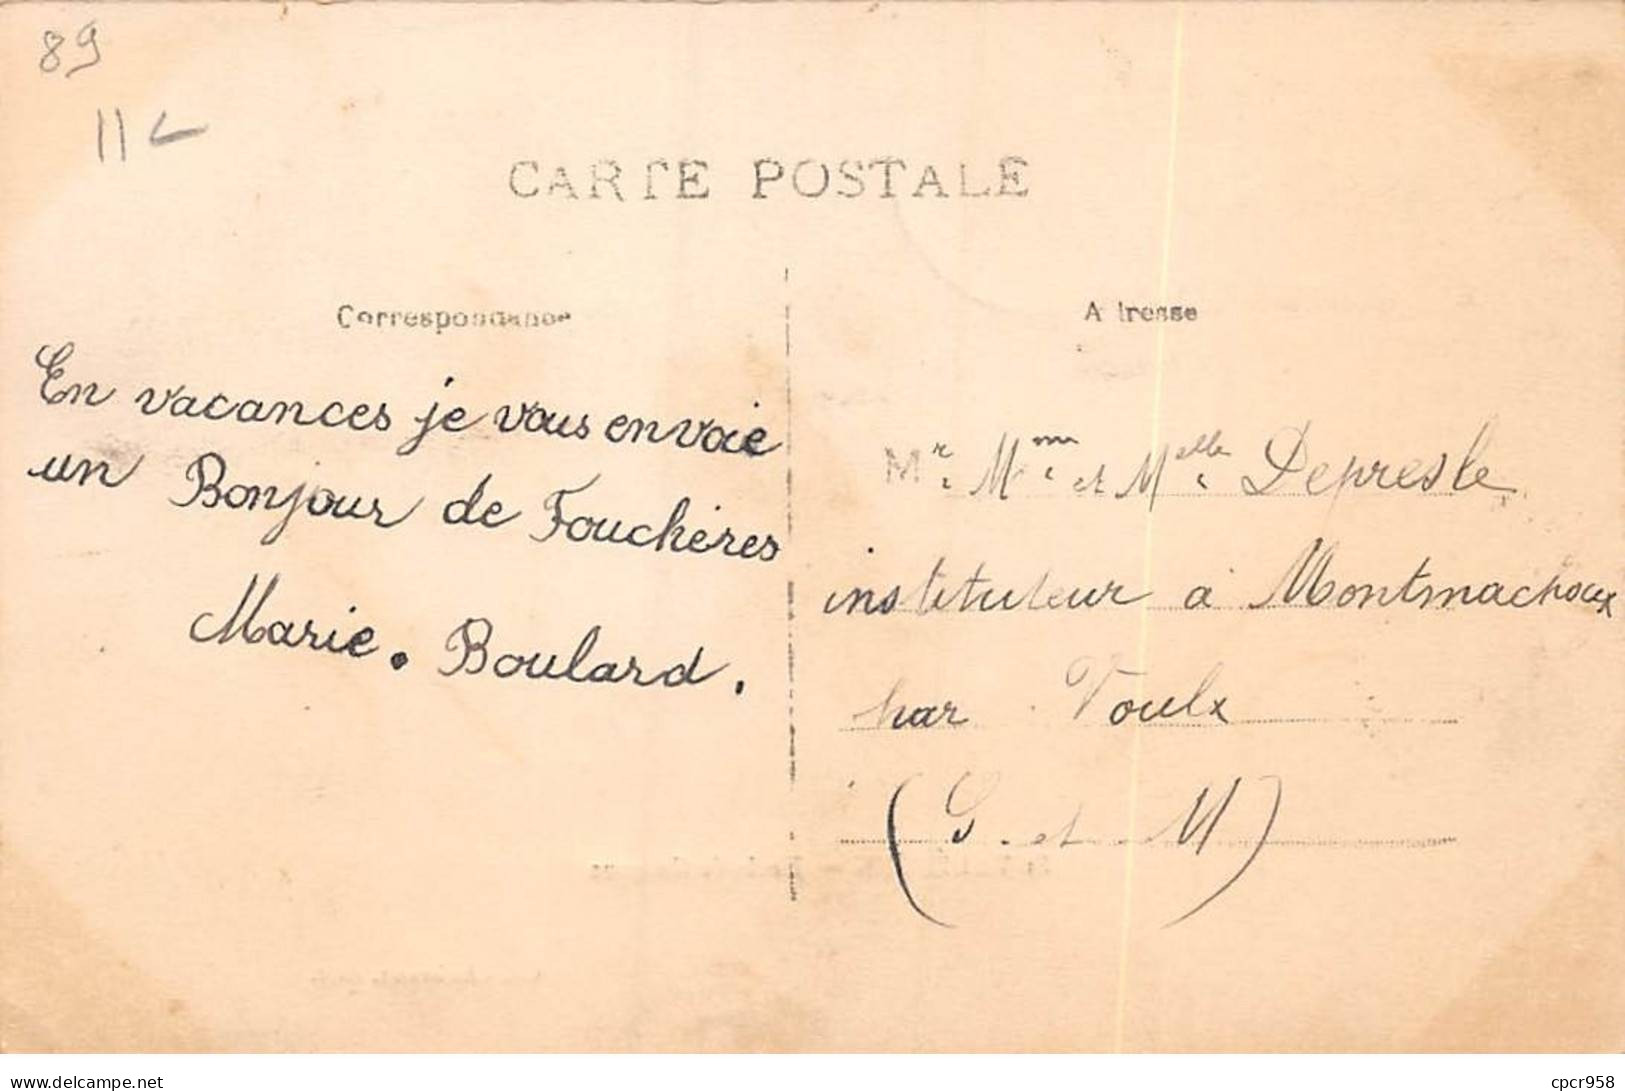 89
11
CARTE POSTALE
Correspondance
En vacances je vous envoie
un Bonjour de Fouchères
Marie. Boulard.
Adresse
Mr. Mme. et Melle. Depresle
instituteur à Montmachoux
par Voulx
(S. et M)
www.delcampe.net
cpcr958